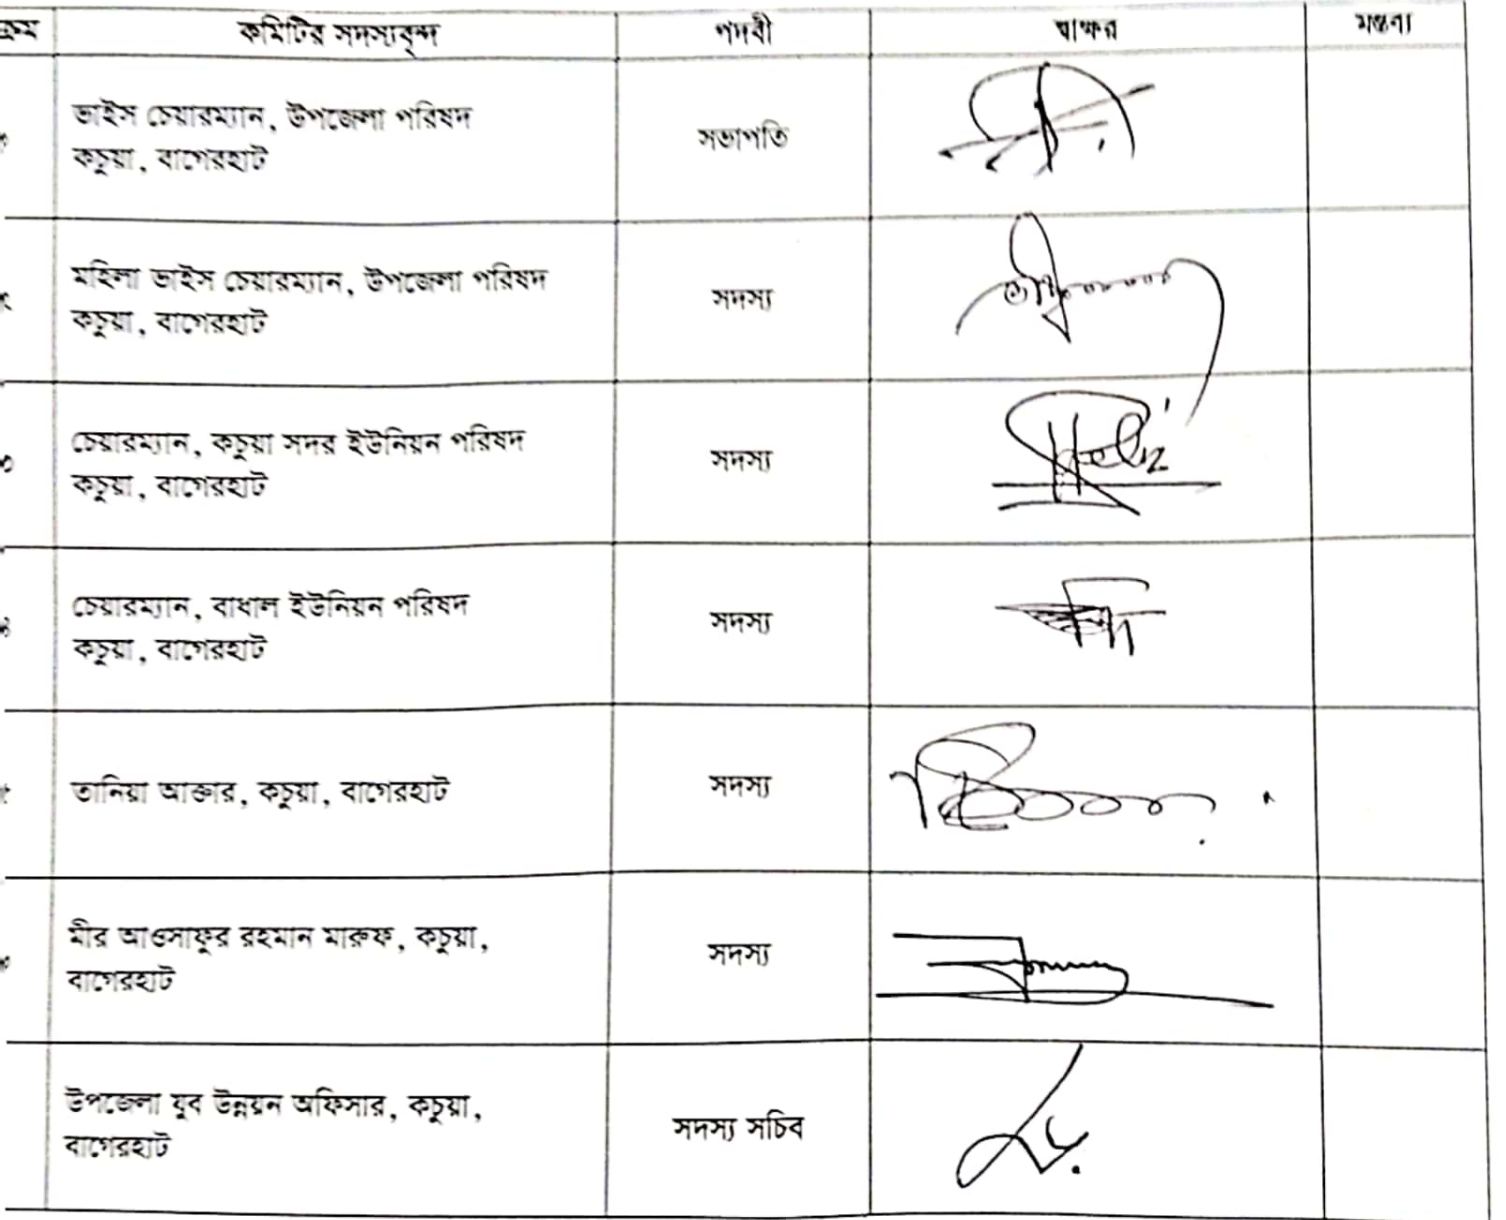 ক্রম কমিটির সদস্যবৃন্দ পদবী স্বাক্ষর মন্তব্য
ভাইস চেয়ারম্যান, উপজেলা পরিষদ
কচুয়া, বাগেরহাট
সভাপতি
মহিলা ভাইস চেয়ারম্যান, উপজেলা পরিষদ
কচুয়া, বাগেরহাট
সদস্য
চেয়ারম্যান, কচুয়া সদর ইউনিয়ন পরিষদ
কচুয়া, বাগেরহাট
সদস্য
চেয়ারম্যান, বাধাল ইউনিয়ন পরিষদ
কচুয়া, বাগেরহাট
সদস্য
তানিয়া আক্তার, কচুয়া, বাগেরহাট
সদস্য
মীর আওসাফুর রহমান মারুফ, কচুয়া,
বাগেরহাট
সদস্য
উপজেলা যুব উন্নয়ন অফিসার, কচুয়া,
বাগেরহাট
সদস্য সচিব